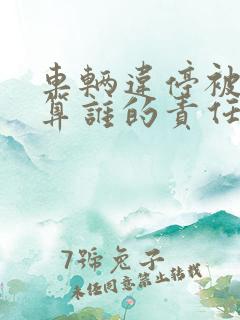 車輛違停被
算誰的責任
7號兔子
未經同意禁止轉載